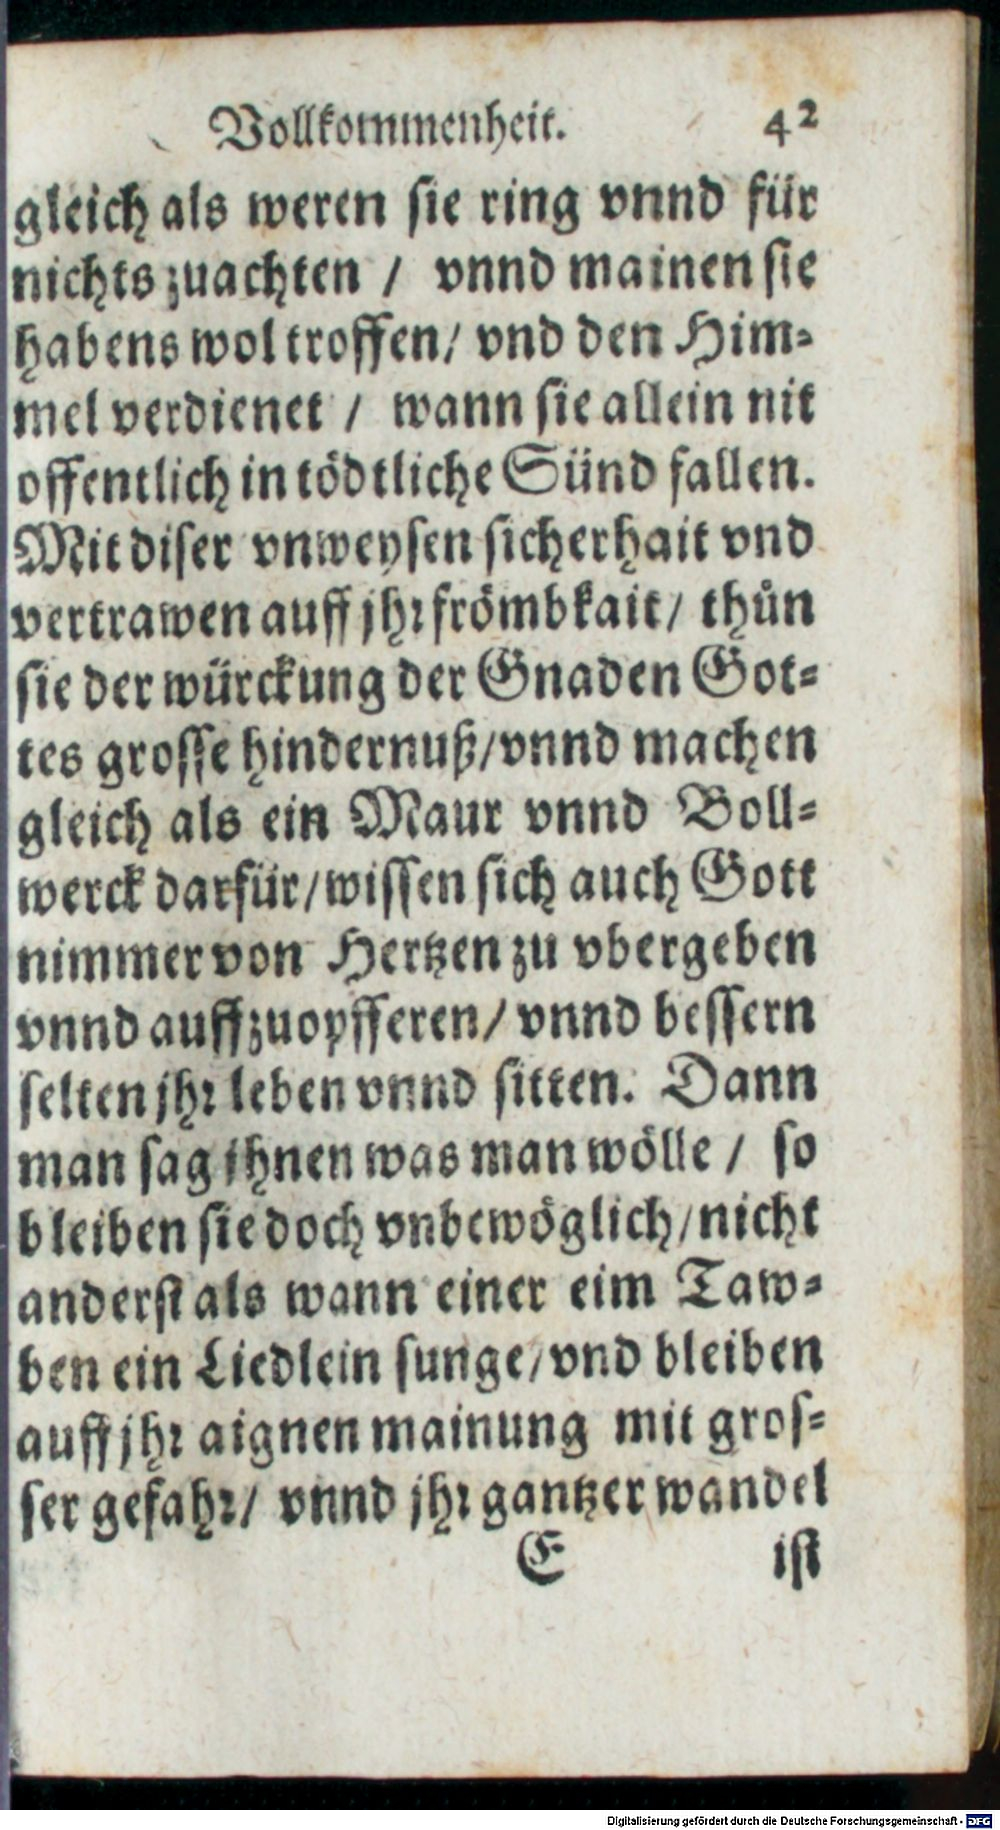 Vollkommenheit. 42
gleich als weren sie ring vnnd für
nichts zuachten / vnnd mainen sie
habens wol troffen / vnd den Him-
mel verdienet / wann sie allein nit
offentlich in tödtliche Sünd fallen.
Mit diser vnweysen sicherhait vnd
vertrawen auff jhr frömbkait / thůn
sie der würckung der Gnaden Got-
tes grosse hindernuß / vnnd machen
gleich als ein Maur vnnd Boll-
werck darfür / wissen sich auch Gott
nimmer von Hertzen zu vbergeben
vnnd auffzuopfferen / vnnd bessern
selten jhr leben vnnd sitten. Dann
man sag jhnen was man wölle / so
bleiben sie doch vnbewöglich / nicht
anderst als wann einer eim Taw-
ben ein Liedlein sunge / vnd bleiben
auff jhr aignen mainung mit gros-
ser gefahr / vnnd jhr gantzer wandel
E ist
Digitalisierung gefördert durch die Deutsche Forschungsgemeinschaft - DFG